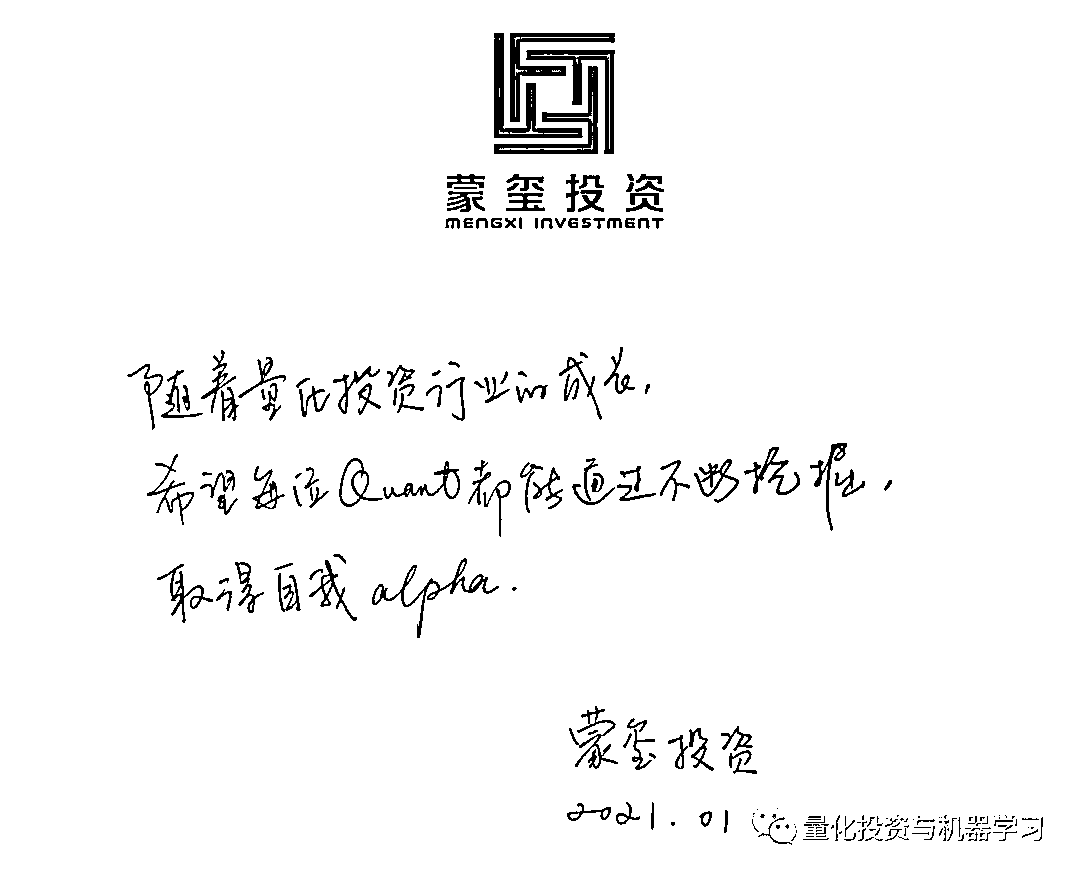 蒙玺投资
MENGXI INVESTMENT
随着量化投资行业的成长,
希望每位Quant都能通过不断挖掘,
取得自我alpha.
蒙玺投资
2021.01
量化投资与机器学习